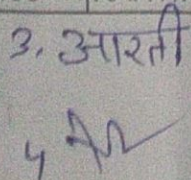 3. आरती
4